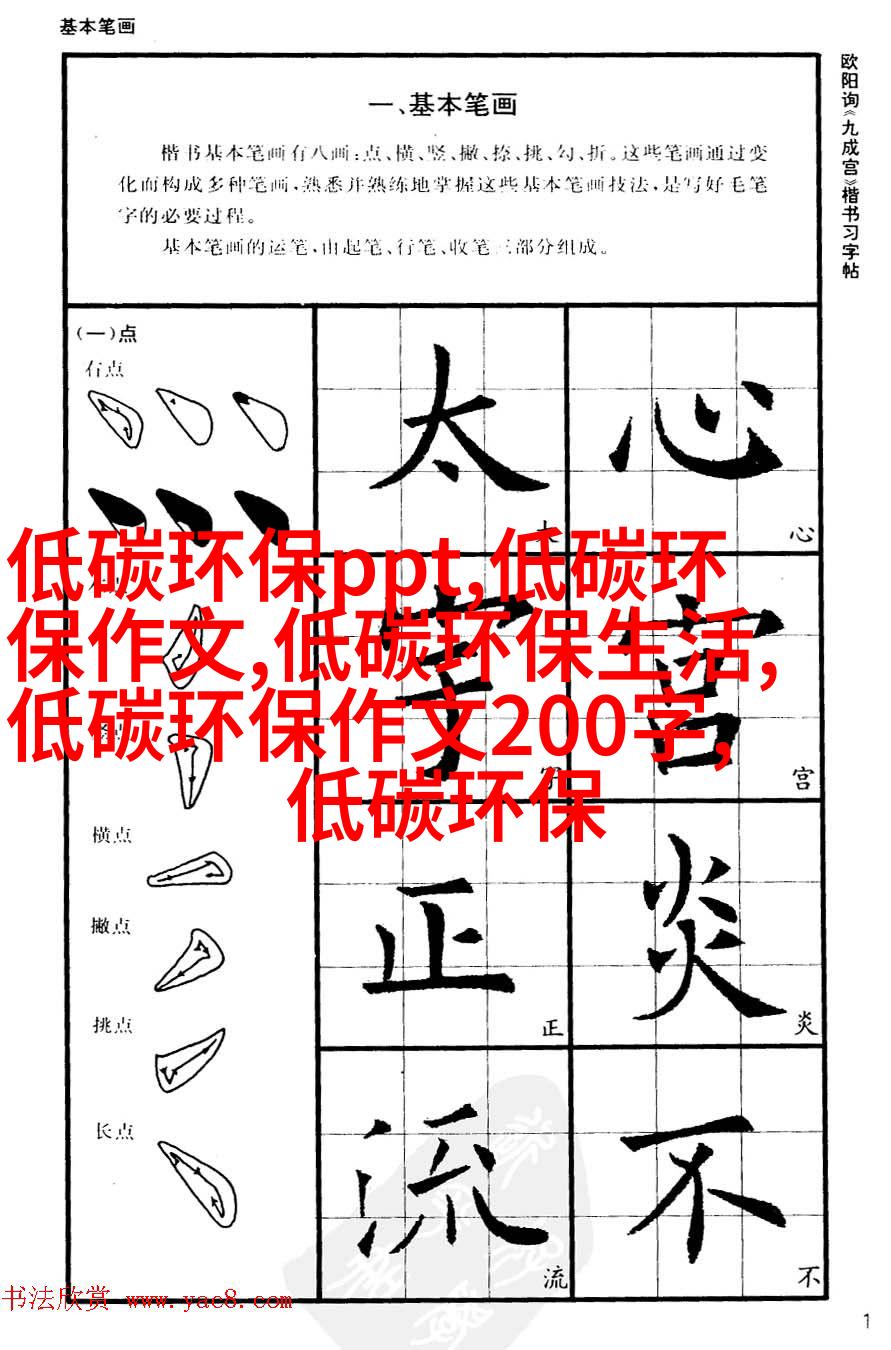 基本笔画
欧阳询《九成宫》楷书习字帖
一、基本笔画
楷书基本笔画有八画:点、横、竖、撇、捺、挑、勾、折。这些笔画通过变
化而构成多种笔画,熟悉并熟练地掌握这些基本笔画技法,是写好毛笔
字的必要过程。
基本笔画的运笔,由起笔、行笔、收笔三部分组成。
(一)点
右点
太
心
心
低碳环保ppt,低碳环
保作文,低碳环保生活,
低碳环保作文200字,
低碳环保
字
字
宫
宫
横点
撇点
挑点
长点
正
正
炎
炎
流
流
不
不
书法欣赏 www.yac8.com
1